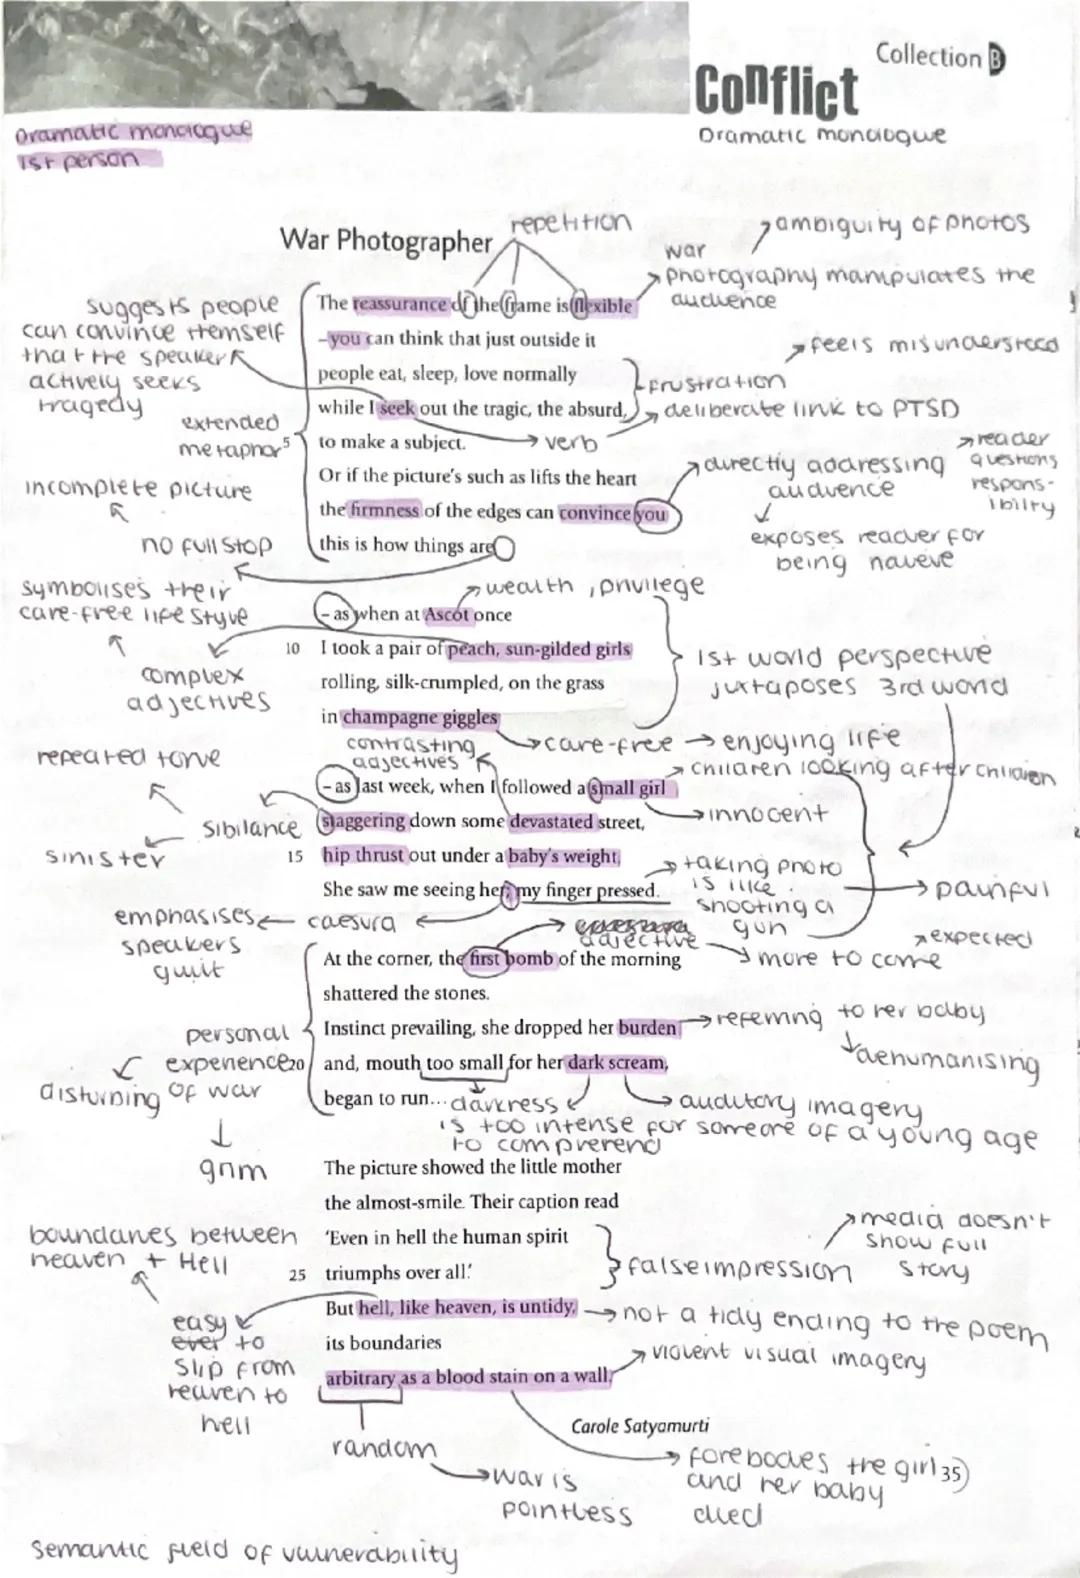 Collection B
Conflict
Dramatic monologue
Dramatic monologue
1st person
repetition
War Photographer
ambiguity of photos
war
photography manipulates the
audience
The reassurance of the frame is flexible
suggests people
can convince themself
that the speaker
actively seeks
tragedy
– you can think that just outside it
feels misunderstood
people eat, sleep, love normally
frustration
while I seek out the tragic, the absurd,
deliberate link to PTSD
extended
metaphor
5 to make a subject.
verb
reader
questions
respons-
ibility
Or if the picture's such as lifts the heart
directly addressing
audience
incomplete picture
the firmness of the edges can convince you
exposes reader for
being naueve
no full stop
this is how things are
symbolises their
care-free life style
wealth, privilege
– as when at Ascot once
10 I took a pair of peach, sun-gilded girls
1st world perspective
juxtaposes 3rd world
complex
adjectives
rolling, silk-crumpled, on the grass
in champagne giggles
care-free → enjoying life
contrasting
adjectives
repeated tone
children looking after children
– as last week, when I followed a small girl
innocent
sibilance
staggering down some devastated street,
sinister
15 hip thrust out under a baby's weight,
taking photo
is like
shooting a
gun
painful
She saw me seeing her; my finger pressed.
emphasises
speakers
guilt
caesura
adjective
expected
more to come
At the corner, the first bomb of the morning
shattered the stones.
personal
experience
of war
disturbing
grim
Instinct prevailing, she dropped her burden
referring to her baby
dehumanising
20 and, mouth too small for her dark scream,
began to run...
darkness
is too intense for someone of a young age
to comprehend
auditory imagery
The picture showed the little mother
the almost-smile. Their caption read
boundaries between
heaven + Hell
'Even in hell the human spirit
25 triumphs over all.'
false impression
media doesn't
show full
story
But hell, like heaven, is untidy,
not a tidy ending to the poem
easy
ever to
slip from
heaven to
hell
its boundaries
violent visual imagery
arbitrary as a blood stain on a wall.
Carole Satyamurti
random
war is
pointless
forebodes the girl
and her baby
died
35
Semantic field of vulnerability